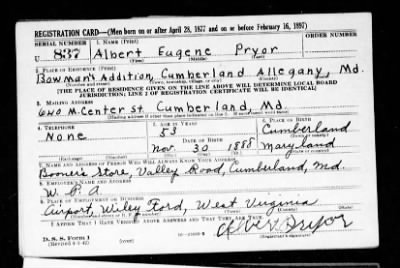 REGISTRATION CARD—(Men born on or after April 28, 1877 and on or before February 16, 1897)
SERIAL NUMBER 1. NAME (Print)
U 837 Albert Eugene Pryor
(First) (Middle) (Last)
2. PLACE OF RESIDENCE (Print)
Bowman's Addition, Cumberland Allegany, Md.
(Number and street) (Town, township, village, or city) (County) (State)
[THE PLACE OF RESIDENCE GIVEN ON THE LINE ABOVE WILL DETERMINE LOCAL BOARD
JURISDICTION; LINE 2 OF REGISTRATION CERTIFICATE WILL BE IDENTICAL]
3. MAILING ADDRESS
640 N. Center St. Cumberland, Md.
[Mailing address if other than place indicated on line 2. If same insert word same]
4. TELEPHONE 5. AGE IN YEARS 6. PLACE OF BIRTH
None 53 Cumberland
DATE OF BIRTH (Town or county)
Nov. 30 1888 Maryland
(Exchange) (Number) (Mo.) (Day) (Yr.) (State or country)
7. NAME AND ADDRESS OF PERSON WHO WILL ALWAYS KNOW YOUR ADDRESS
Boone's Store, Valley Road, Cumberland, Md.
8. EMPLOYER'S NAME AND ADDRESS
W. P. A.
9. PLACE OF EMPLOYMENT OR BUSINESS
Airport, Wiley Ford, West Virginia
(Number and street or R. F. D. number) (Town) (County) (State)
I AFFIRM THAT I HAVE VERIFIED ABOVE ANSWERS AND THAT THEY ARE TRUE.
D. S. S. Form 1
(Revised 4-1-42) (over)
Pryor